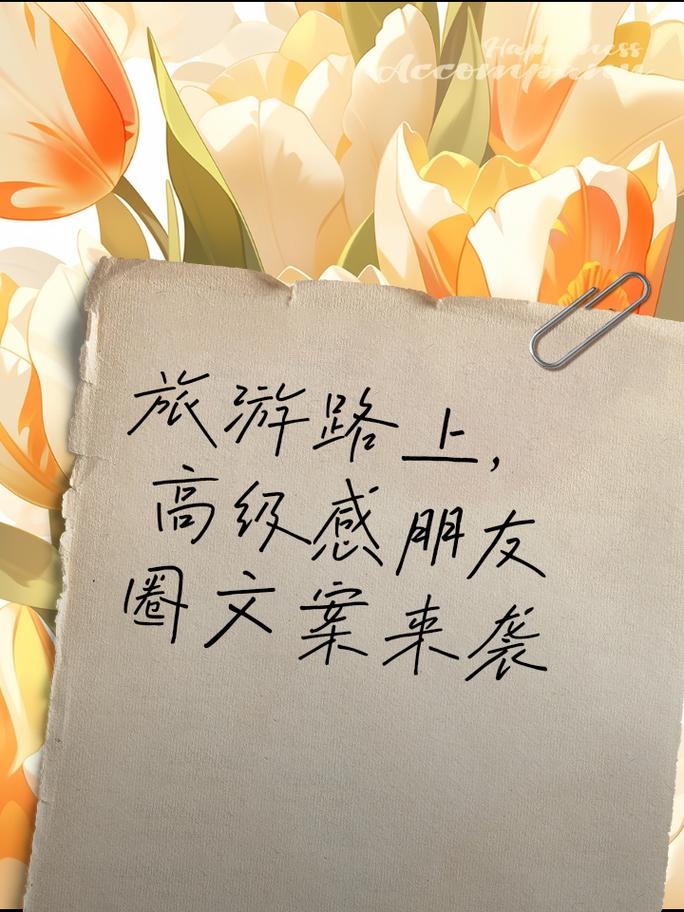 Happiness
Accompany
旅游路上,
高级感朋友
圈文案来袭